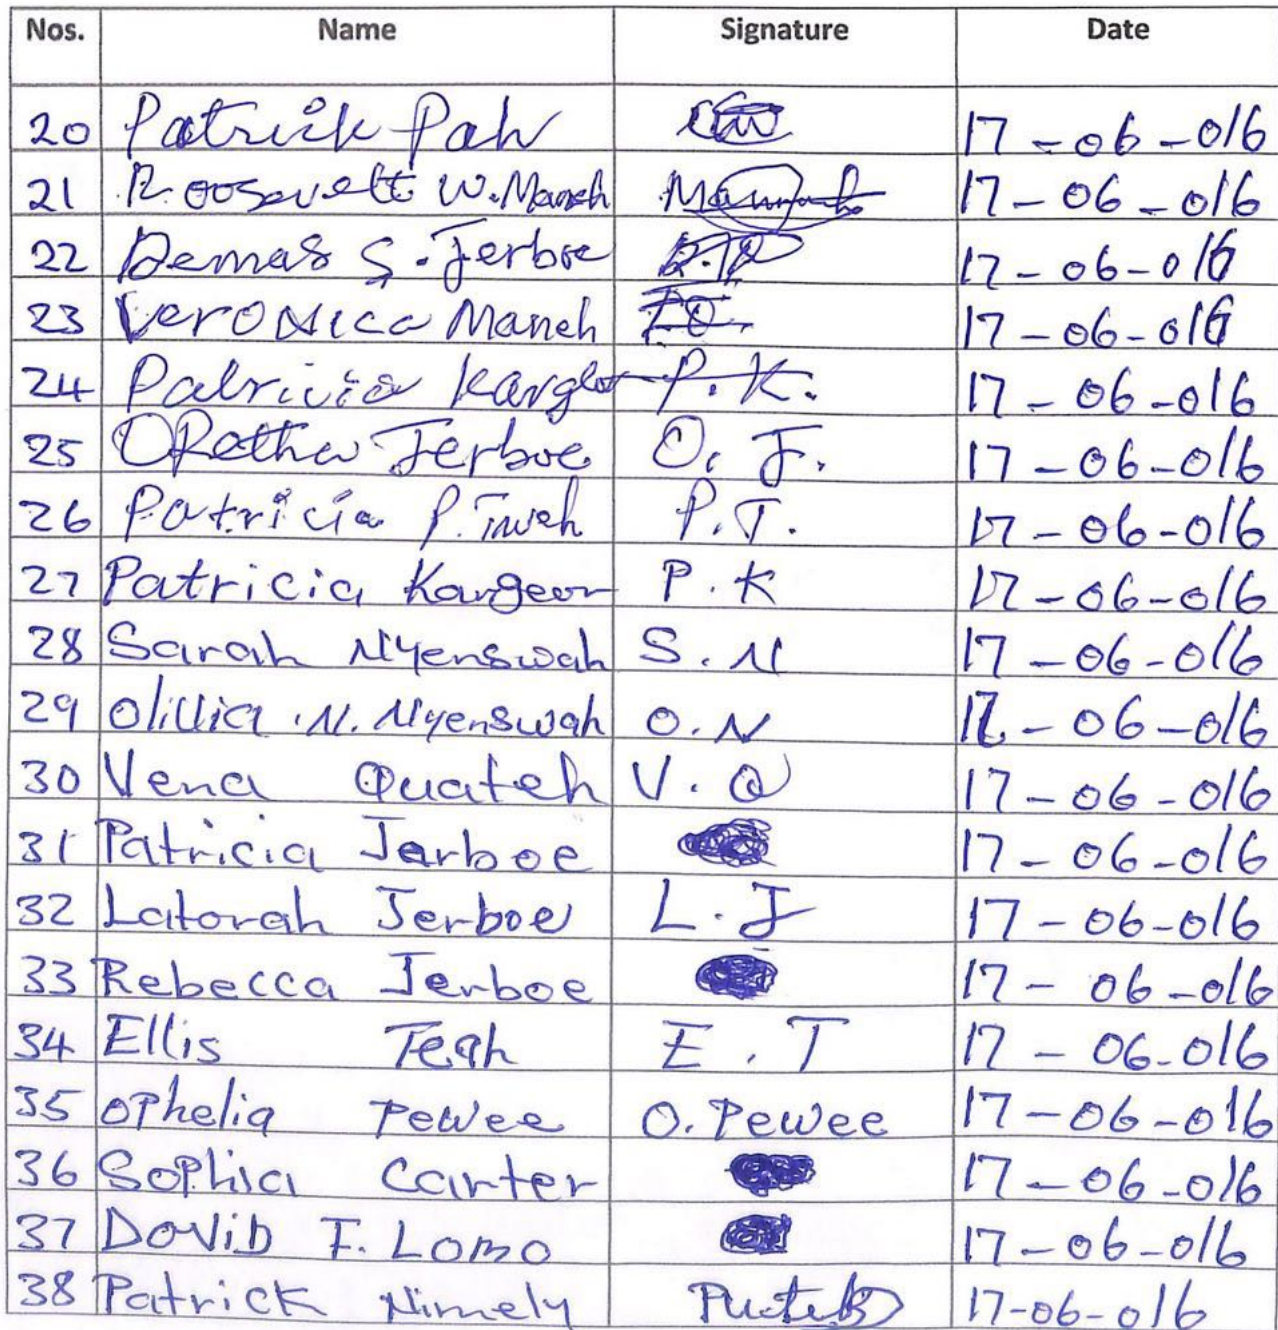 Nos. Name Signature Date
20 Patrick Pah 17-06-016
21 Roosevelt W. Maneh 17-06-016
22 Demas S. Jerboe 17-06-016
23 Veronica Maneh 17-06-016
24 Patricia P.K. 17-06-016
25 ORetha Jerboe O. J. 17-06-016
26 Patricia P. Tweh P.T. 17-06-016
27 Patricia Kargeor P.K 17-06-016
28 Sarah Nyenswah S.N 17-06-016
29 N. Nyenswah O.N 17-06-016
30 Vena Quateh V.Q 17-06-016
31 Patricia Jarboe 17-06-016
32 Latorah Jerboe L.J 17-06-016
33 Rebecca Jerboe 17-06-016
34 Ellis Teah E.T 17-06-016
35 Ophelia Pewee O. Pewee 17-06-016
36 Sophia Carter 17-06-016
37 DaviD F. Lomo 17-06-016
38 Patrick Nimely 17-06-016